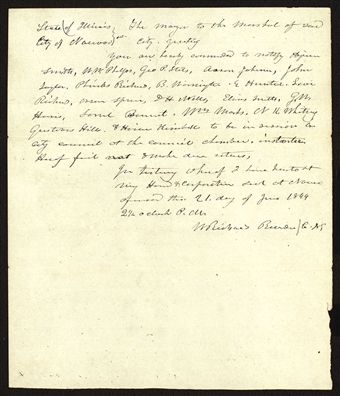 State of Illinois, The mayor to the Marshal of said
City of Nauvoo city. greeting
You are hereby commanded to notify Hyrum
Smith, W. W. Phelps, Geo P. Stiles, Aaron Johnson, John
Taylor, Phinehas Richard, B. Warrington E. Hunter. Levi
Richard, orson spencer, D. H. Wells, Elias Smith, G. W.
Harris, Samuel Bennet. Wm Marks, N. K. Whitney
Gustavus Hills. & Heber Kimball to be in session in
city council at the council chamber, instanter.
Hereof fail not & make due return,
In testimony whereof I have hereunto set
my Hand & Corporation seal at Nauvoo
this 21. day of June 1844
2½ o clock P. M.
W Richards Recorder C. N.